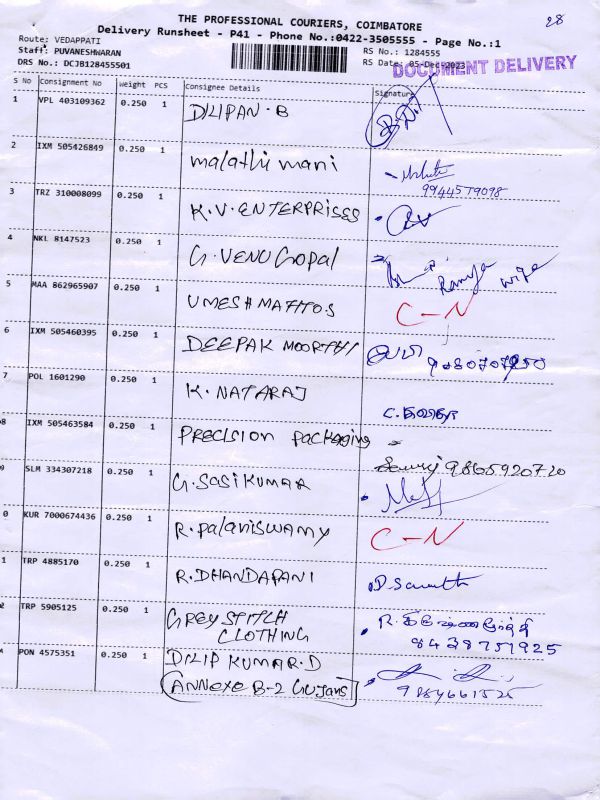 THE PROFESSIONAL COURIERS, COIMBATORE
28
Delivery Runsheet - P41 - Phone No.:0422-3505555 - Page No.:1
Route: VEDAPPATI
RS No.: 1284555
Staff: PUVANESHWARAN
RS Date: 05-Dec-2023
DOCUMENT DELIVERY
DRS No.: DCJB128455501
S No Consignment No Weight PCS Consignee Details Signature
1 VPL 403109362 0.250 1 DILIPAN.B
2 IXM 505426849 0.250 1 malathi mani
9944579098
3 TRZ 310008099 0.250 1 K.V.ENTERPRISES
4 NKL 8147523 0.250 1 G.VENU Gopal
Ramya wife
5 MAA 862965907 0.250 1 UMESH MATTOS C-N
6 IXM 505460395 0.250 1 DEEPAK MOORTHI
7 POL 1601290 0.250 1 K.NATARAJ
8 IXM 505463584 0.250 1 PRECISION packaging
9865920720
9 SLM 334307218 0.250 1 G.SASIKUMAR
0 KUR 7000674436 0.250 1 R.palaniswamy C-N
1 TRP 4885170 0.250 1 R.DHANDAPANI
2 TRP 5905125 0.250 1 GREY STITCH
CLOTHING
8438751925
PON 4575351 0.250 1 DILIP KUMAR.D
ANNEXE B-2